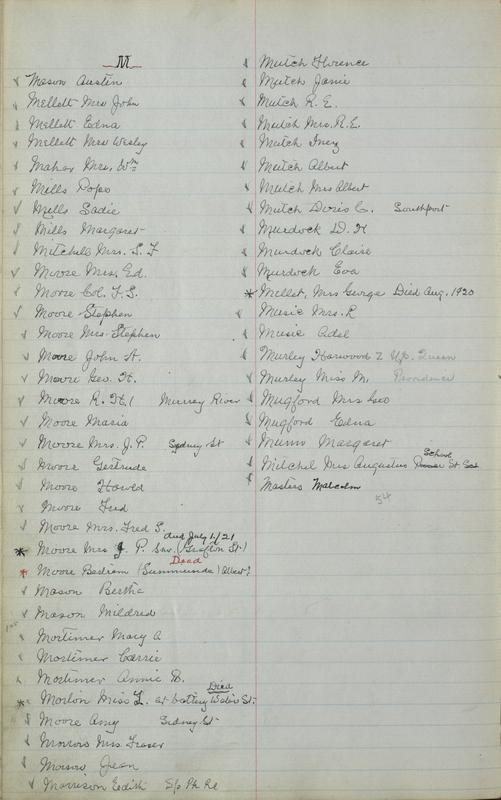 M
Mason Austin
Mellett Mrs John
Mellett Edna
Mellett Mrs Wesley
Mahar Mrs. Wm
Mills Pope
Mills Sadie
Mills Margaret
Mitchell Mrs. S. F
Moore Mrs. Ed.
Moore Col. F. S.
Moore Stephen
Moore Mrs. Stephen
Moore John H.
Moore Geo. H.
Moore R. H. ( Murray River
Moore Maria
Moore Mrs. J. P. Sydney St
Moore Gertrude
Moore Howld
Moore Fred
Moore Mrs. Fred S.
died July 1/21
Moore Mrs J. P. Snr. (Grafton St.)
Dead
Moore Bedram (Summerside) Albert?
Mason Bertha
Mason Mildred
Mortimer Mary A
Mortimer Carrie
Mortimer Annie
Died
Morton Miss L. at battery Water St.
Moore Amy Sidney St
Morris Mrs Fraser
Jean
Morrison Eedith
Mutch Florence
Mutch Janie
Mutch R. E.
Mutch Mrs. R. E.
Mutch Inez
Mutch Albert
Mutch Mrs Albert
Mutch Doris C. Southport
Murdock D. H
Murdock Claire
Murdock Eva
Millet, Mrs George Died Aug. 1920
Music Mrs. R
Music Adel
Murley Harwood Z Up. Queen
Murley Miss M. Providence
Mugford Mrs Geo
Mugford Edna
Munn Margaret
School
Mitchel Mrs Augustus St
Masters Malcolm
54